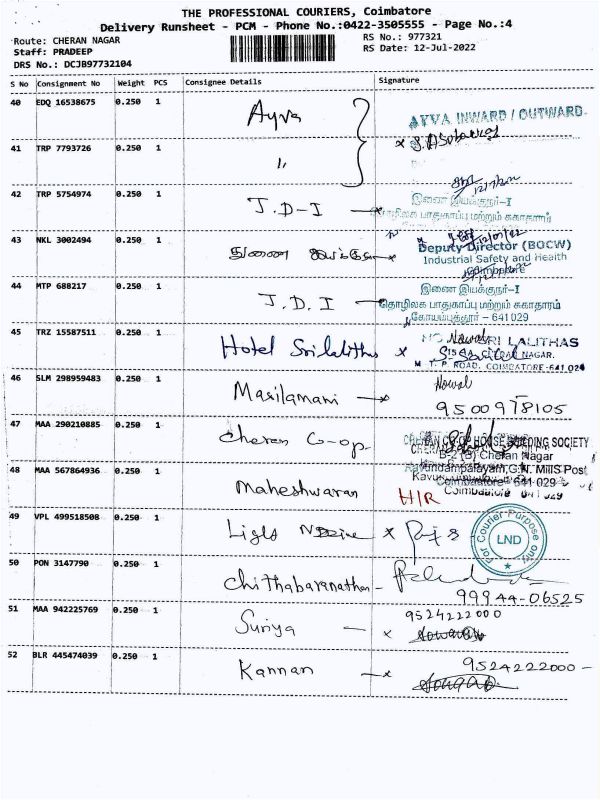 THE PROFESSIONAL COURIERS, Coimbatore
Delivery Runsheet - PCM - Phone No.:0422-3505555 - Page No.:4
Route: CHERAN NAGAR
RS No.: 977321
Staff: PRADEEP
RS Date: 12-Jul-2022
DRS No.: DCJB97732104
S No Consignment No Weight PCS Consignee Details Signature
40 EDQ 16538675 0.250 1 Ayva
AYVA INWARD / OUTWARD
41 TRP 7793726 0.250 1 "
12/7/22
42 TRP 5754974 0.250 1 J.D-I
இணை இயக்குநர்-I
தொழிலக பாதுகாப்பு மற்றும் சுகாதாரம்
43 NKL 3002494 0.250 1
Deputy Director (BOCW)
Industrial Safety and Health
Coimbatore
44 MTP 688217 0.250 1 J.D.I
இணை இயக்குநர்-I
தொழிலக பாதுகாப்பு மற்றும் சுகாதாரம்
கோயம்புத்தூர் - 641 029
45 TRZ 15587511 0.250 1 Hotel Srilalithas x
SRI LALITHAS
CHERAN NAGAR.
M. T. P. ROAD, COIMBATORE-641 029
46 SLM 298959483 0.250 1 Masilamani
9500978105
47 MAA 290210885 0.250 1 Cheran Co-op.
CHERAN CO-OP HOUSE BUILDING SOCIETY
B-2 (B) Cheran Nagar
Ravundampalayam, G.N. Mills Post
Coimbatore - 641 029
48 MAA 567864936 0.250 1 Maheshwaran H/R
49 VPL 499518508 0.250 1
For Courier Purpose only
LND
50 PON 3147790 0.250 1 Chithabaranathan
99944-06525
51 MAA 942225769 0.250 1 Suriya
9524222000
52 BLR 445474039 0.250 1 Kannan
9524222000